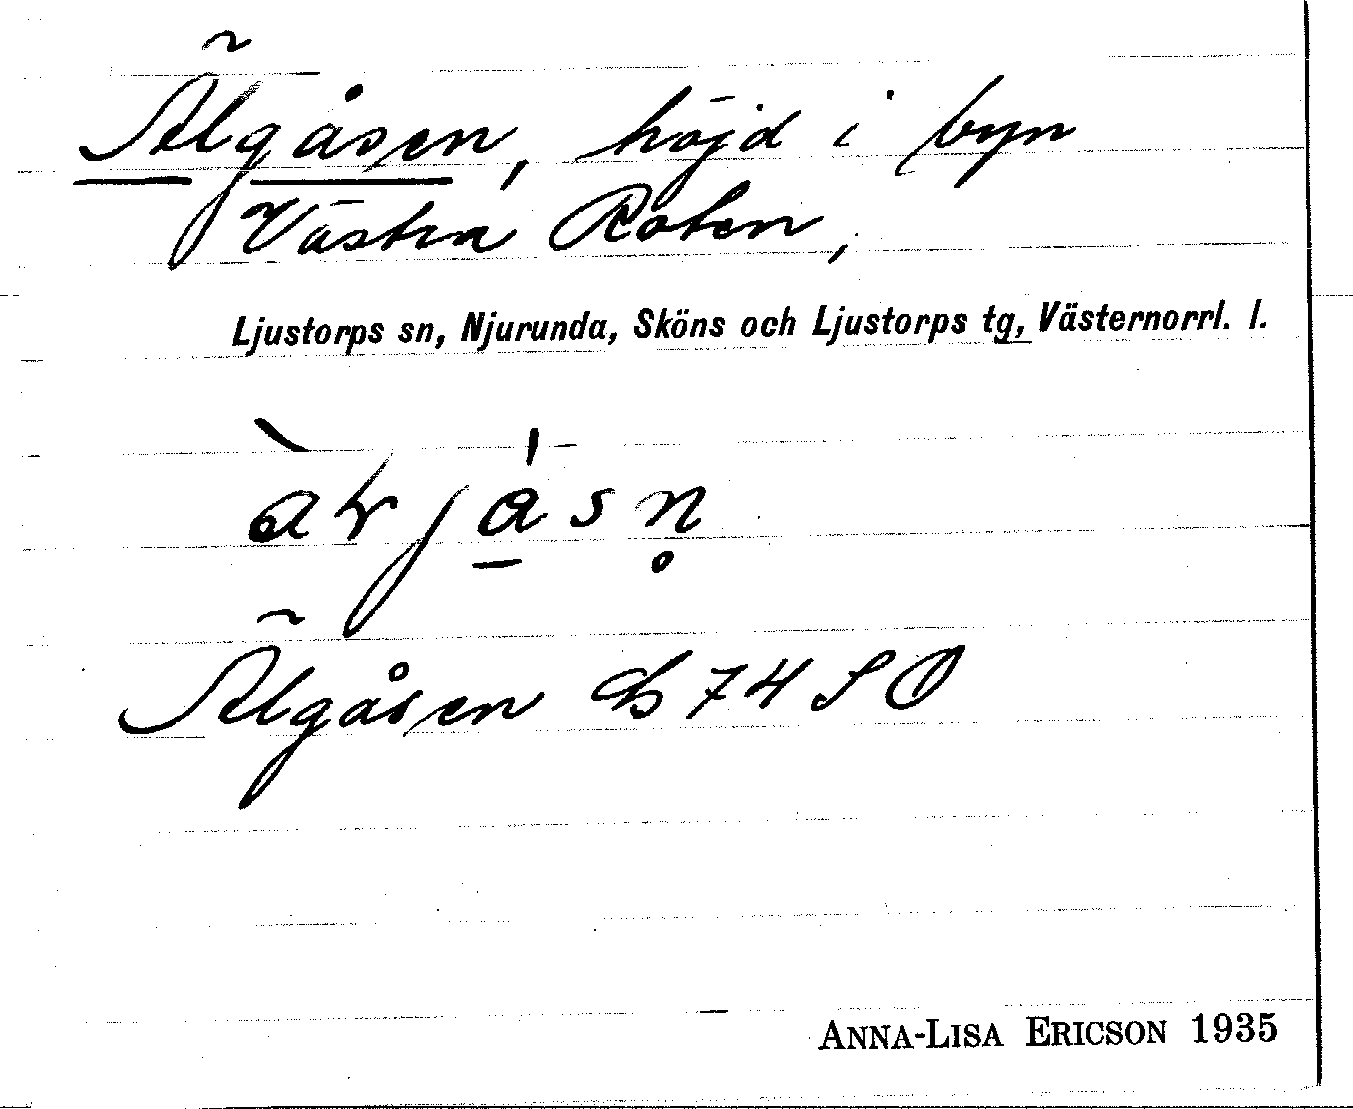 Älgåsen, höjd i byn
Västra Roten,
Ljustorps sn, Njurunda, Sköns och Ljustorps tg, Västernorrl. l.
Älgåsen 74 SO
ANNA-LISA ERICSON 1935